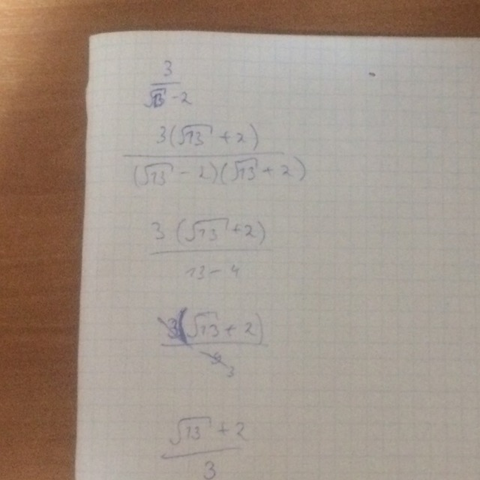 3
√13 - 2
3(√13 + 2)
(√13 - 2)(√13 + 2)
3 (√13 + 2)
13 - 4
3(√13 + 2)
9 3
√13 + 2
3